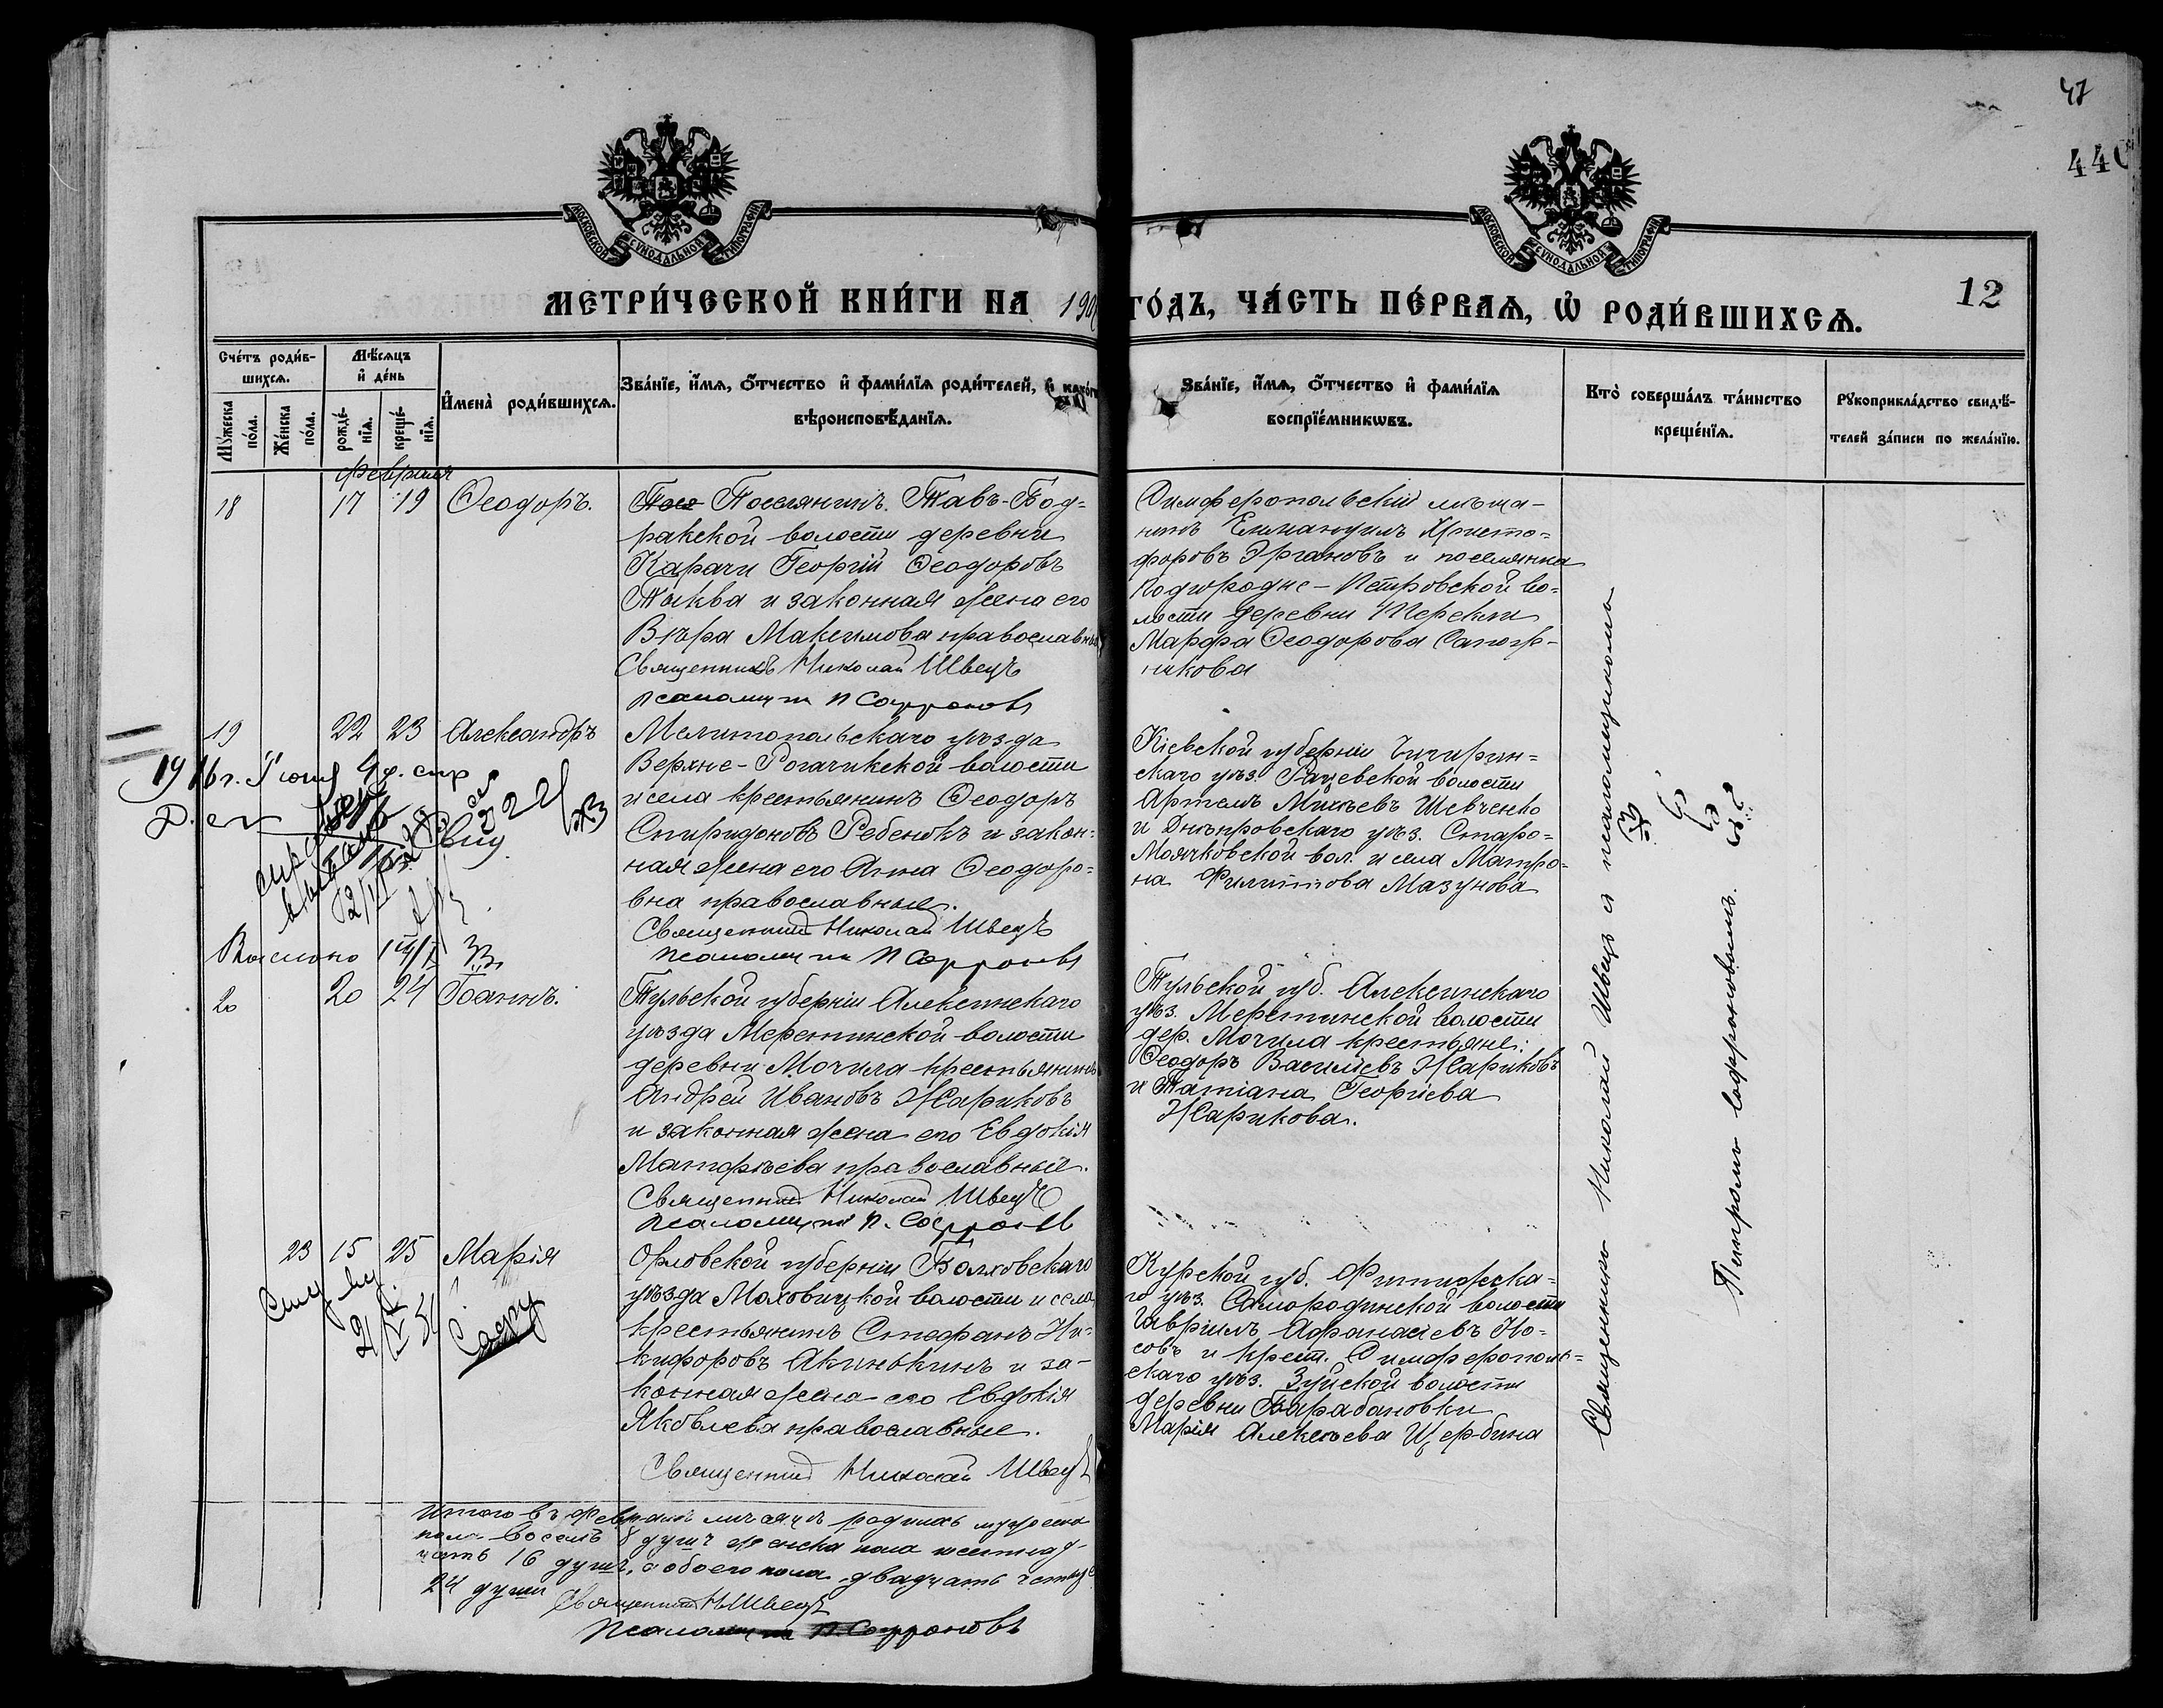 47
440
МОСКОВСКОЙ СѴНОДАЛЬНОЙ ТИПОГРАФІИ
МОСКОВСКОЙ СѴНОДАЛЬНОЙ ТИПОГРАФІИ
МЕТРИ́ЧЕСКОЙ КНИ́ГИ НА 190
ГО́ДЪ, ЧА́СТЬ ПЕ́РВАѦ, Ѡ҆ РОДИ́ВШИХСѦ.
12
Сче́тъ роди́в-
шихсѧ.
Мѣ́сѧцъ
и҆ де́нь
Мꙋ́жеска по́ла.
Же́нска по́ла.
рожде́-нїѧ.
креще́-нїѧ.
И҆мена̀ роди́вшихсѧ.
Зва́нїе, и҆́мѧ, ѻ҆́тчество и҆ фами́лїѧ роди́телей, и҆ како́гѡ
вѣроисповѣ́данїѧ.
Зва́нїе, и҆́мѧ, ѻ҆́тчество и҆ фами́лїѧ
воспрїе́мникѡвъ.
Кто̀ соверша́лъ та́инство
креще́нїѧ.
Рꙋкоприкла́дство свидѣ́-
телей за́писи по жела́нїю.
Февраля
18 17 19 Ѳеодоръ.
Посе Поселянинъ Тавъ-Бод-
ракской волости деревни
Карачи Георгій Ѳеодоровъ
Тыква и законная жена его
Вѣра Максимова православны
Священникъ Николай Швецъ
псаломщ П Софроновъ
Симферопольскій мѣща-
нинъ Еммануилъ Христо-
форовъ Эргановъ и поселянка
Подгородне-Петровской во-
лости деревни
Марфа Ѳеодорова Сапож-
никова
19 22 23 Александръ
Мелитопольскаго уѣзда
Верхне-Рогачикской волости
и села крестьянинъ Ѳеодоръ
Спиридоновъ Ребенокъ и закон-
ная жена его Анна Ѳеодоро-
вна православные.
Священникъ Николай Швецъ
псаломщ П Софроновъ
Кіевской губерніи Чигирин-
скаго уѣз. Рацевской волости
Артемъ Шевченко
и Днѣпровскаго уѣз. Старо-
Маячковской вол. и села Матро-
на Филиппова Мазунова
1916 г.
20 20 24 Іоаннъ.
Тульской губерніи Алексинскаго
уѣзда волости
деревни Мочила крестьянинъ
Андрей Ивановъ Жариковъ
и законная жена его Евдокія
Матфѣева православные.
Священникъ Николай Швецъ
псаломщ П. Софронов
Тульской губ. Алексинскаго
уѣз. волости
дер. Мочила крестьяне:
Ѳеодоръ Васильевъ Жариковъ
и Татіана Георгіева
Жарикова.
23 15 25 Марія
Орловской губерніи Болховскаго
уѣзда Моховицкой волости и села
крестьянинъ Стефанъ Ни-
кифоровъ Акинькинъ и за-
конная жена его Евдокія
Яковлева православные.
Священникъ Николай Швецъ
Курской губ.
го уѣз. Смородинской волости
Гавріилъ Афанасіевъ Но-
совъ и крест. Симферополь-
скаго уѣз. Зуйской волости
деревни Барабановки
Марія Алексѣева Щербина
Священникъ Николай Швецъ с псаломщикомъ
Петромъ Софроновымъ.
Итого въ Февралѣ мѣсяцѣ родилось мужеска
пола восемь 8 душъ женска пола шестнад-
цать 16 душъ, а обоего пола двадцать четыре
24 души
Священникъ Н Швецъ
Псаломщ П. Софроновъ